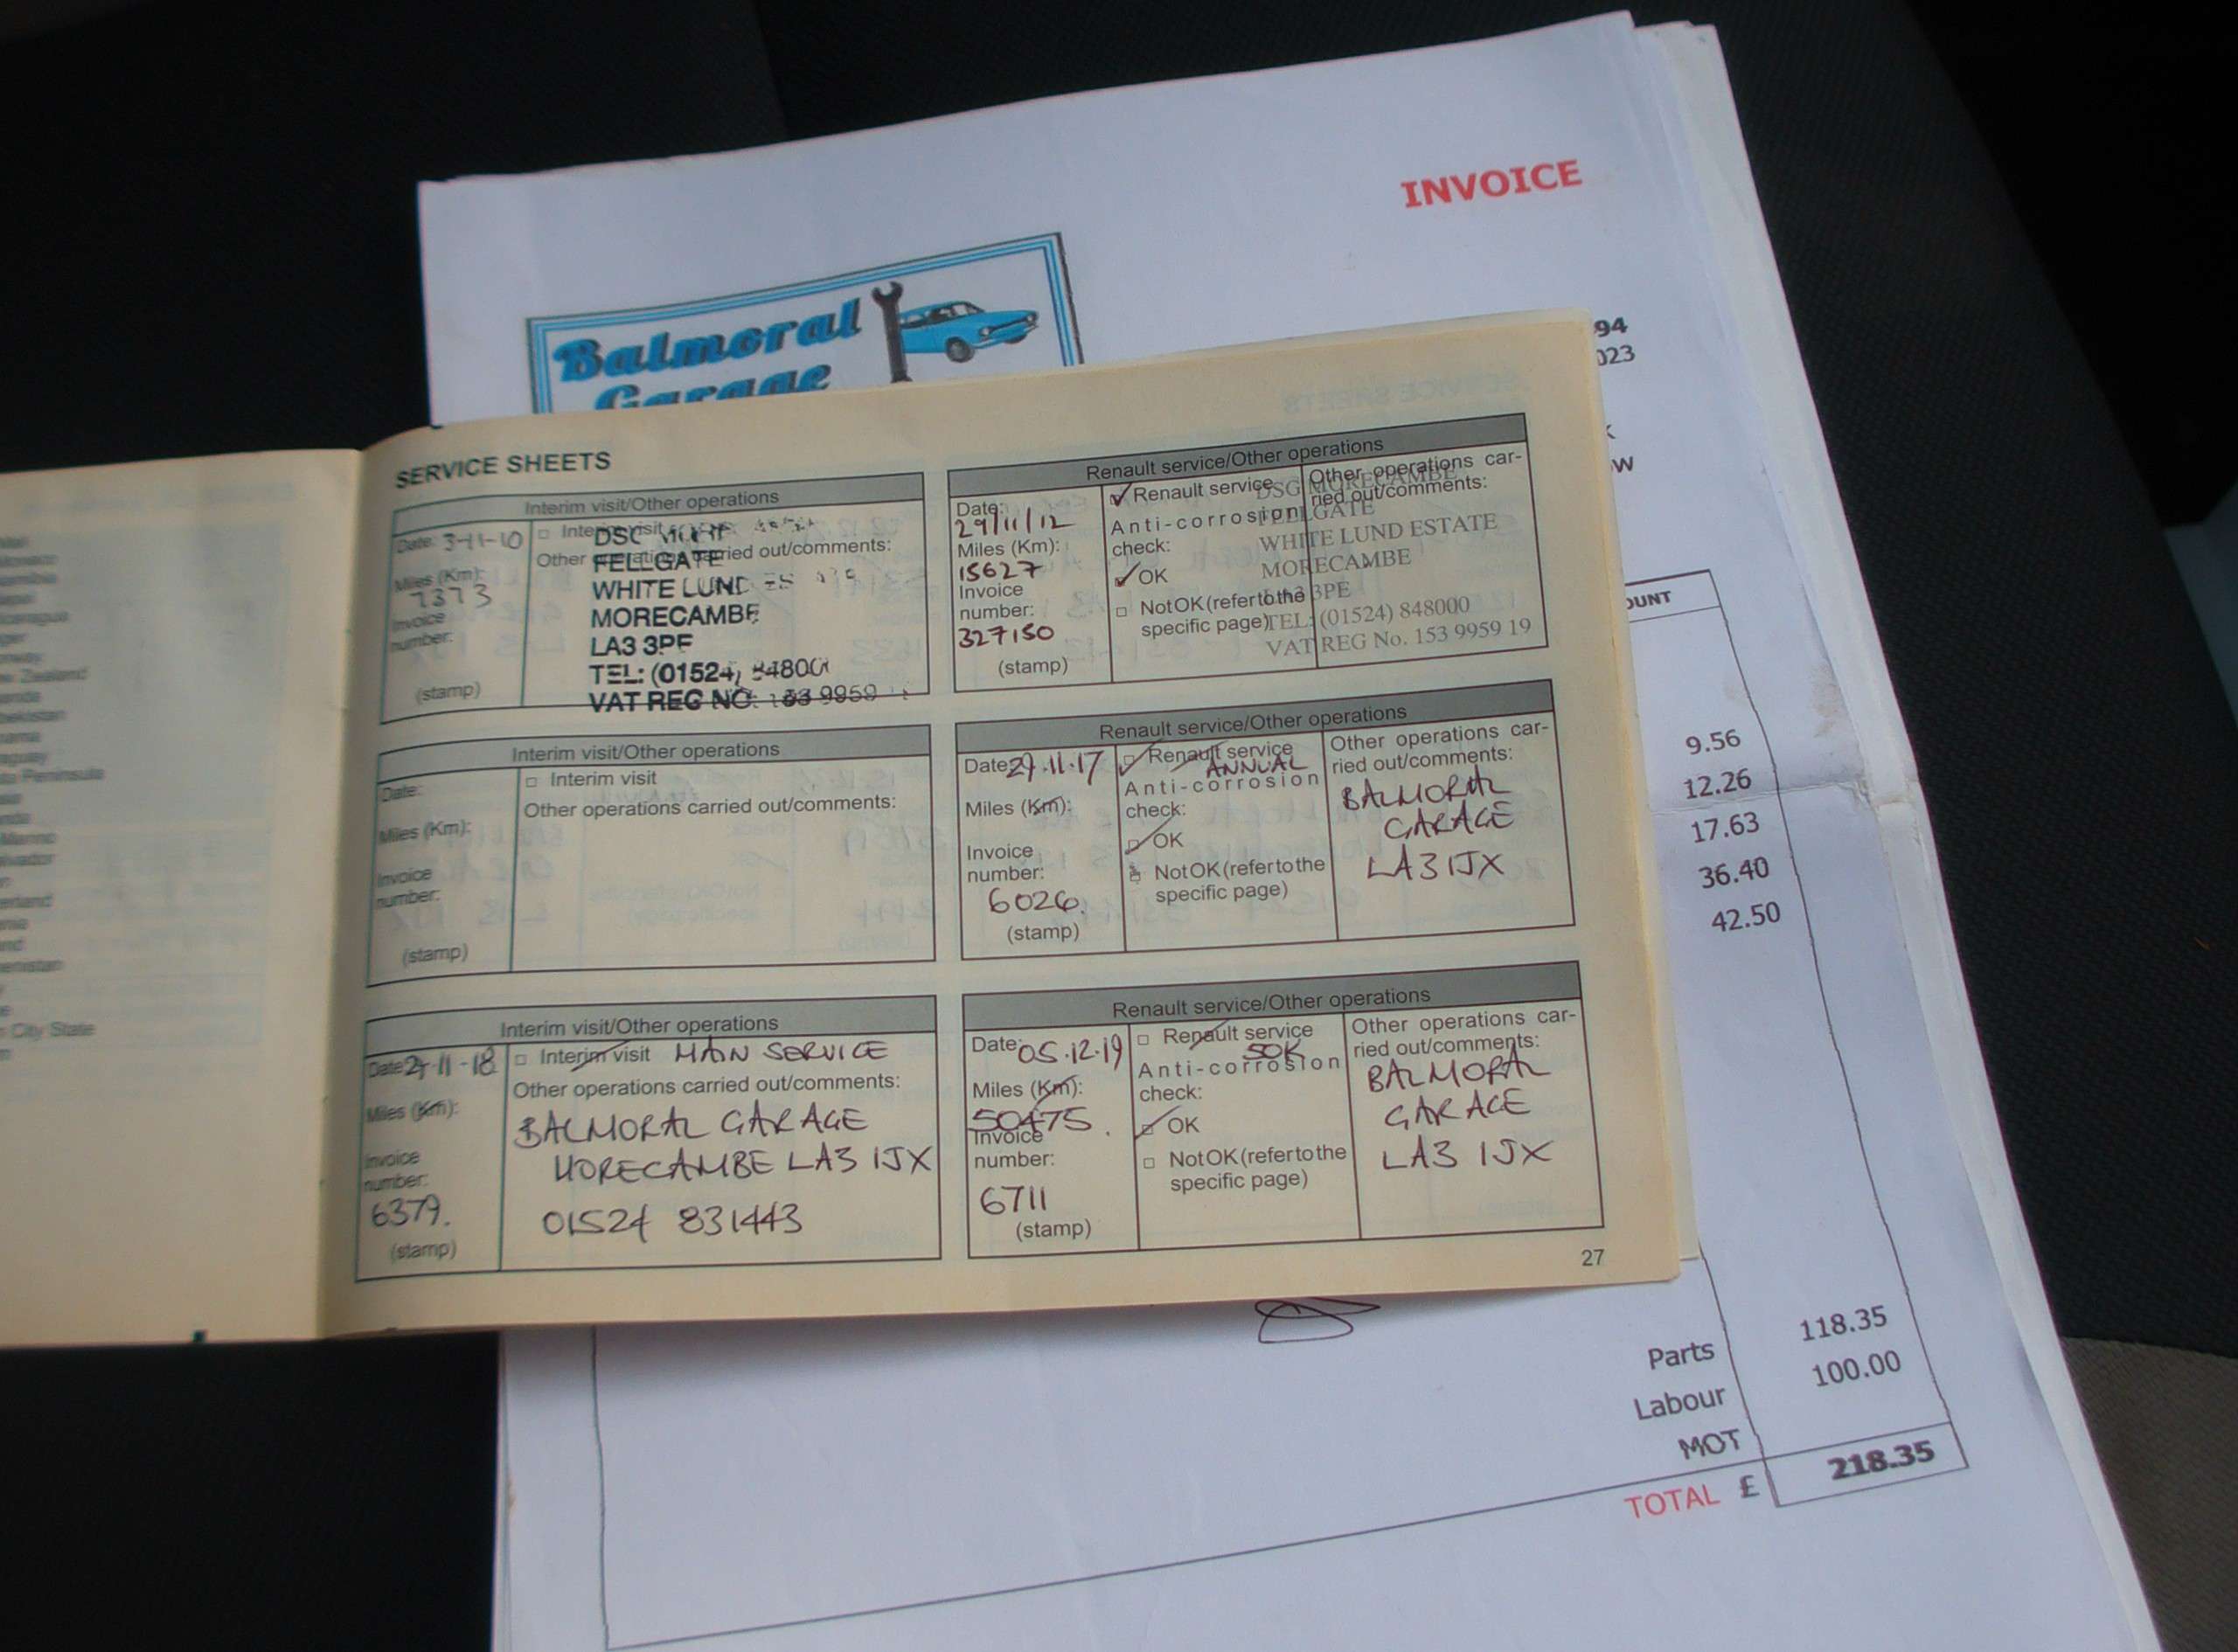 INVOICE
Balmoral
Garage
94
023
W
OUNT
9.56
12.26
17.63
36.40
42.50
Parts 118.35
Labour 100.00
MOT
TOTAL £ 218.35
SERVICE SHEETS
Interim visit/Other operations
Date: 3-11-10
Interim visit
Other operations carried out/comments:
Miles (Km):
7373
Invoice
number:
(stamp)
FELLGATE
WHITE LUND
MORECAMBE
LA3 3PE
TEL: (01524) 84800
VAT REG NO. 153 9959
Renault service/Other operations
Date:
29/11/12
Miles (Km):
15627
Invoice
number:
327150
(stamp)
✓ Renault service
Anti-corrosion
check:
✓ OK
Not OK (refer to the
specific page)
Other operations car-
ried out/comments:
DSG MORECAMBE
FELLGATE
WHITE LUND ESTATE
MORECAMBE
LA3 3PE
TEL: (01524) 848000
VAT REG No. 153 9959 19
Interim visit/Other operations
Date:
Miles (Km):
Invoice
number:
(stamp)
Interim visit
Other operations carried out/comments:
Renault service/Other operations
Date: 29.11.17
Miles (Km):
Invoice
number:
6026.
(stamp)
Renault service
ANNUAL
Anti-corrosion
check:
OK
Not OK (refer to the
specific page)
Other operations car-
ried out/comments:
BALMORAL
GARAGE
LA3 1JX
Interim visit/Other operations
Date 11-18
Miles (Km):
Invoice
number:
6379.
(stamp)
Interim visit MAIN SERVICE
Other operations carried out/comments:
BALMORAL GARAGE
MORECAMBE LA3 1JX
01524 831443
Renault service/Other operations
Date: 05.12.19
Miles (Km):
50475.
Invoice
number:
6711
(stamp)
Renault service
50K
Anti-corrosion
check:
OK
Not OK (refer to the
specific page)
Other operations car-
ried out/comments:
BALMORAL
GARAGE
LA3 1JX
27